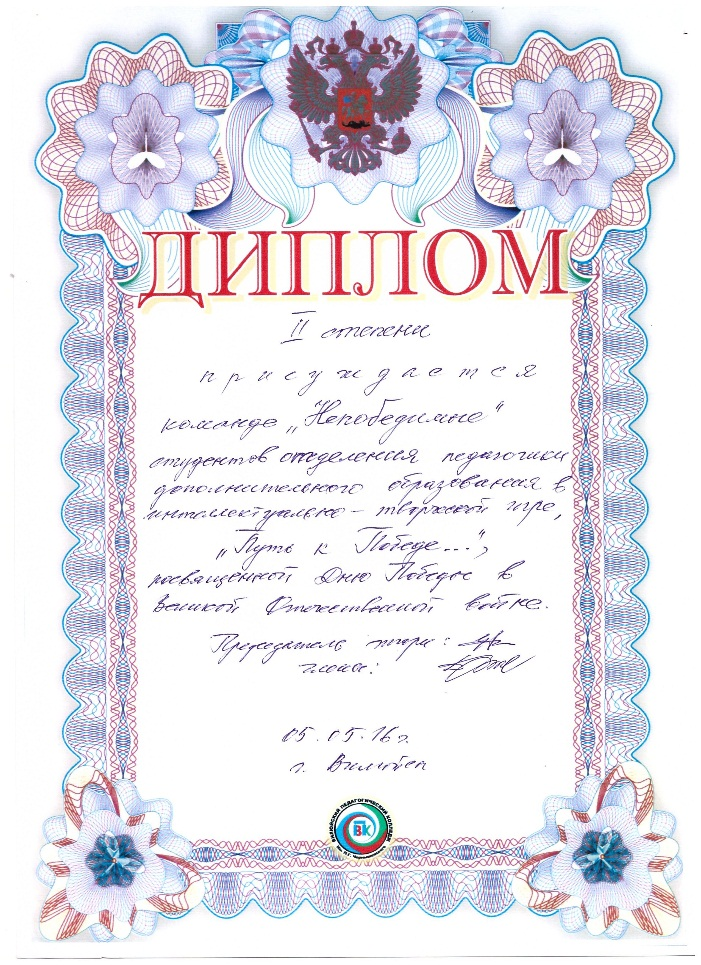 ДИПЛОМ
II степени
присуждается
команде „Непобедимые"
студентов отделения педагогики
дополнительного образования в
интеллектуально - творческой игре,
„Путь к Победе...",
посвященной Дню Победы в
Великой Отечественной войне.
Председатель жюри:
члены:
05.05.16 г.
г. Вилюйск
ВИЛЮЙСКИЙ ПЕДАГОГИЧЕСКИЙ КОЛЛЕДЖ
ВПК